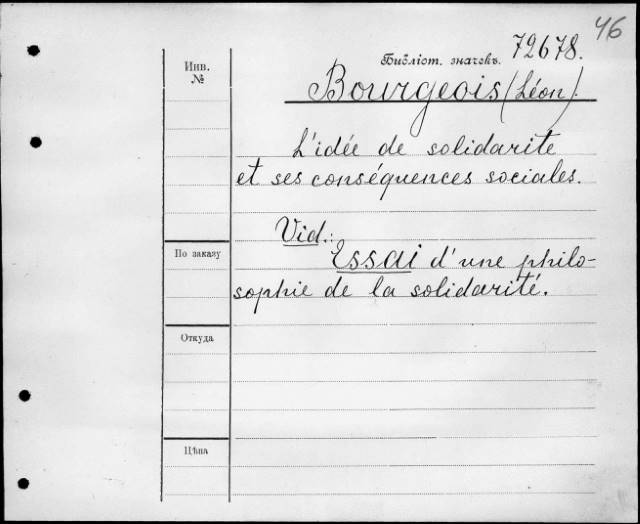 46
Библіот. значекъ. 72678.
Инв.
№
Bourgeois (Léon).
L'idée de solidarite
et ses conséquences sociales.
Vid.:
По заказу
Essai d'une philo-
sophie de la solidarité.
Откуда
Цѣна